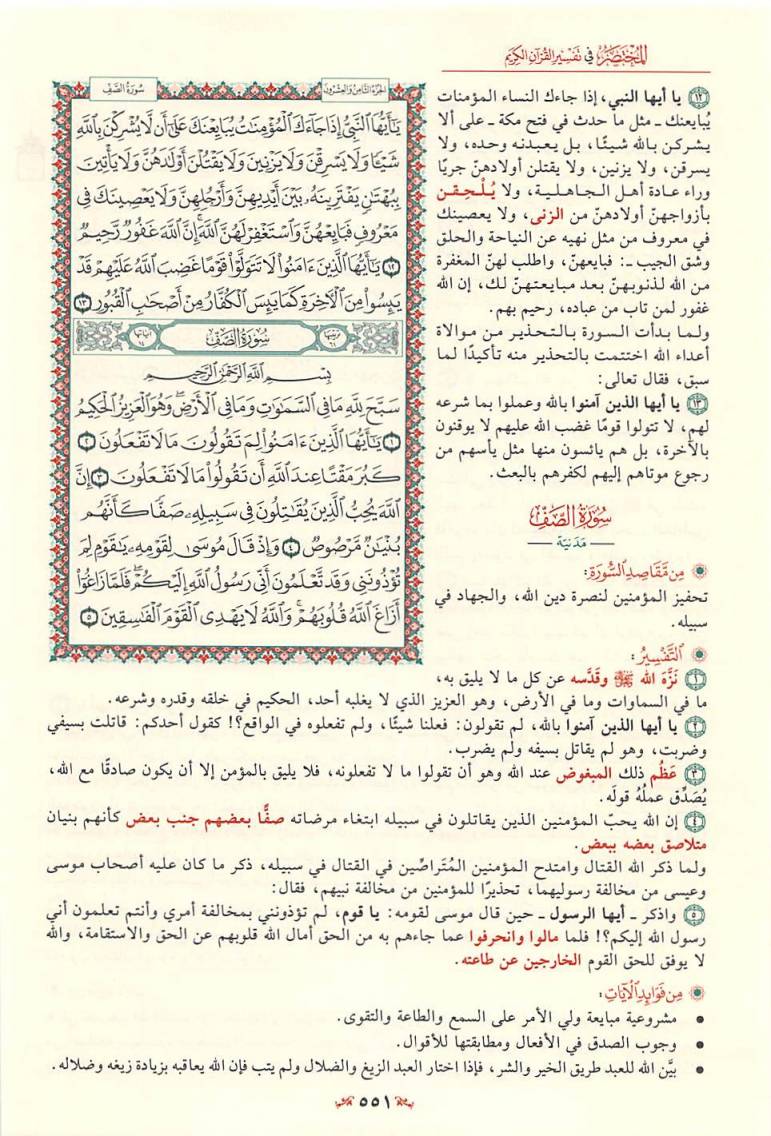 المختصر في تفسير القرآن الكريم
١٢ يا أيها النبي، إذا جاءك النساء المؤمنات
يُبايعنك ـ مثل ما حدث في فتح مكة ـ على ألا
يشركن بالله شيئًا، بل يعبدنه وحده، ولا
يسرقن، ولا يزنين، ولا يقتلن أولادهنّ جريًا
وراء عادة أهل الجاهلية، ولا يُلْحِقن
بأزواجهنّ أولادهنّ من الزنى، ولا يعصينك
في معروف من مثل نهيه عن النياحة والحلق
وشق الجيب ـ: فبايعهنّ، واطلب لهنّ المغفرة
من الله لذنوبهنّ بعد مبايعتهنّ لك، إن الله
غفور لمن تاب من عباده، رحيم بهم.
ولما بدأت السورة بالتحذير من موالاة
أعداء الله اختتمت بالتحذير منه تأكيدًا لما
سبق، فقال تعالى:
١٣ يا أيها الذين آمنوا بالله وعملوا بما شرعه
لهم، لا تتولوا قومًا غضب الله عليهم لا يوقنون
بالآخرة، بل هم يائسون منها مثل يأسهم من
رجوع موتاهم إليهم لكفرهم بالبعث.
سُورَةُ الصَّفِّ
مَدَنيّة
مِن مَّقَاصِدِ السُّورَةِ:
تحفيز المؤمنين لنصرة دين الله، والجهاد في
سبيله.
التَّفْسِيرُ:
١ نَزَّه الله ﷻ وقَدَّسه عن كل ما لا يليق به،
الجزء الثامن والعشرون
سورة الصف
يَٰٓأَيُّهَا ٱلنَّبِىُّ إِذَا جَآءَكَ ٱلْمُؤْمِنَٰتُ يُبَايِعْنَكَ عَلَىٰٓ أَن لَّا يُشْرِكْنَ بِٱللَّهِ
شَيْـًٔا وَلَا يَسْرِقْنَ وَلَا يَزْنِينَ وَلَا يَقْتُلْنَ أَوْلَٰدَهُنَّ وَلَا يَأْتِينَ
بِبُهْتَٰنٍ يَفْتَرِينَهُۥ بَيْنَ أَيْدِيهِنَّ وَأَرْجُلِهِنَّ وَلَا يَعْصِينَكَ فِى
مَعْرُوفٍ فَبَايِعْهُنَّ وَٱسْتَغْفِرْ لَهُنَّ ٱللَّهَ إِنَّ ٱللَّهَ غَفُورٌ رَّحِيمٌ
١٢ يَٰٓأَيُّهَا ٱلَّذِينَ ءَامَنُوا۟ لَا تَتَوَلَّوْا۟ قَوْمًا غَضِبَ ٱللَّهُ عَلَيْهِمْ قَدْ
يَئِسُوا۟ مِنَ ٱلْءَاخِرَةِ كَمَا يَئِسَ ٱلْكُفَّارُ مِنْ أَصْحَٰبِ ٱلْقُبُورِ ١٣
ترتيبها ٦١ سُورَةُ الصَّفِّ آياتها ١٤
بِسْمِ ٱللَّهِ ٱلرَّحْمَٰنِ ٱلرَّحِيمِ
سَبَّحَ لِلَّهِ مَا فِى ٱلسَّمَٰوَٰتِ وَمَا فِى ٱلْأَرْضِ وَهُوَ ٱلْعَزِيزُ ٱلْحَكِيمُ
١ يَٰٓأَيُّهَا ٱلَّذِينَ ءَامَنُوا۟ لِمَ تَقُولُونَ مَا لَا تَفْعَلُونَ ٢
كَبُرَ مَقْتًا عِندَ ٱللَّهِ أَن تَقُولُوا۟ مَا لَا تَفْعَلُونَ ٣ إِنَّ
ٱللَّهَ يُحِبُّ ٱلَّذِينَ يُقَٰتِلُونَ فِى سَبِيلِهِۦ صَفًّا كَأَنَّهُم
بُنْيَٰنٌ مَّرْصُوصٌ ٤ وَإِذْ قَالَ مُوسَىٰ لِقَوْمِهِۦ يَٰقَوْمِ لِمَ
تُؤْذُونَنِى وَقَد تَّعْلَمُونَ أَنِّى رَسُولُ ٱللَّهِ إِلَيْكُمْ فَلَمَّا زَاغُوٓا۟
أَزَاغَ ٱللَّهُ قُلُوبَهُمْ وَٱللَّهُ لَا يَهْدِى ٱلْقَوْمَ ٱلْفَٰسِقِينَ ٥
ما في السماوات وما في الأرض، وهو العزيز الذي لا يغلبه أحد، الحكيم في خلقه وقدره وشرعه.
٢ يا أيها الذين آمنوا بالله، لم تقولون: فعلنا شيئًا، ولم تفعلوه في الواقع؟! كقول أحدكم: قاتلت بسيفي
وضربت، وهو لم يقاتل بسيفه ولم يضرب.
٣ عَظُم ذلك المبغوض عند الله وهو أن تقولوا ما لا تفعلونه، فلا يليق بالمؤمن إلا أن يكون صادقًا مع الله،
يُصَدِّق عملُهُ قولَه.
٤ إن الله يحبّ المؤمنين الذين يقاتلون في سبيله ابتغاء مرضاته صفًّا بعضهم جنب بعض كأنهم بنيان
متلاصق بعضه ببعض.
ولما ذكر الله القتال وامتدح المؤمنين المُتَراصِّين في القتال في سبيله، ذكر ما كان عليه أصحاب موسى
وعيسى من مخالفة رسوليهما، تحذيرًا للمؤمنين من مخالفة نبيهم، فقال:
٥ واذكر ـ أيها الرسول ـ حين قال موسى لقومه: يا قوم، لم تؤذونني بمخالفة أمري وأنتم تعلمون أني
رسول الله إليكم؟! فلما مالوا وانحرفوا عما جاءهم به من الحق أمال الله قلوبهم عن الحق والاستقامة، والله
لا يوفق للحق القوم الخارجين عن طاعته.
مِن فَوَائِدِ الآيَاتِ:
• مشروعية مبايعة ولي الأمر على السمع والطاعة والتقوى.
• وجوب الصدق في الأفعال ومطابقتها للأقوال.
• بيَّن الله للعبد طريق الخير والشر، فإذا اختار العبد الزيغ والضلال ولم يتب فإن الله يعاقبه بزيادة زيغه وضلاله.
٥٥١